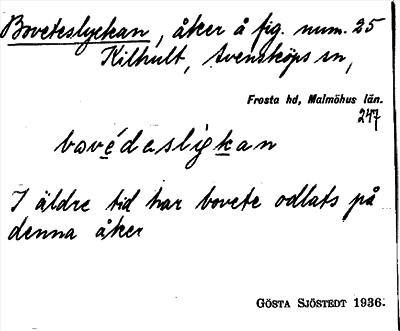 Boveteslyckan, åker å fig. num. 25
Kilhult, Svensköps sn,
Frosta hd, Malmöhus län.
247
bovédaslykan
I äldre tid har bovete odlats på
denna åker
GÖSTA SJÖSTEDT 1936.